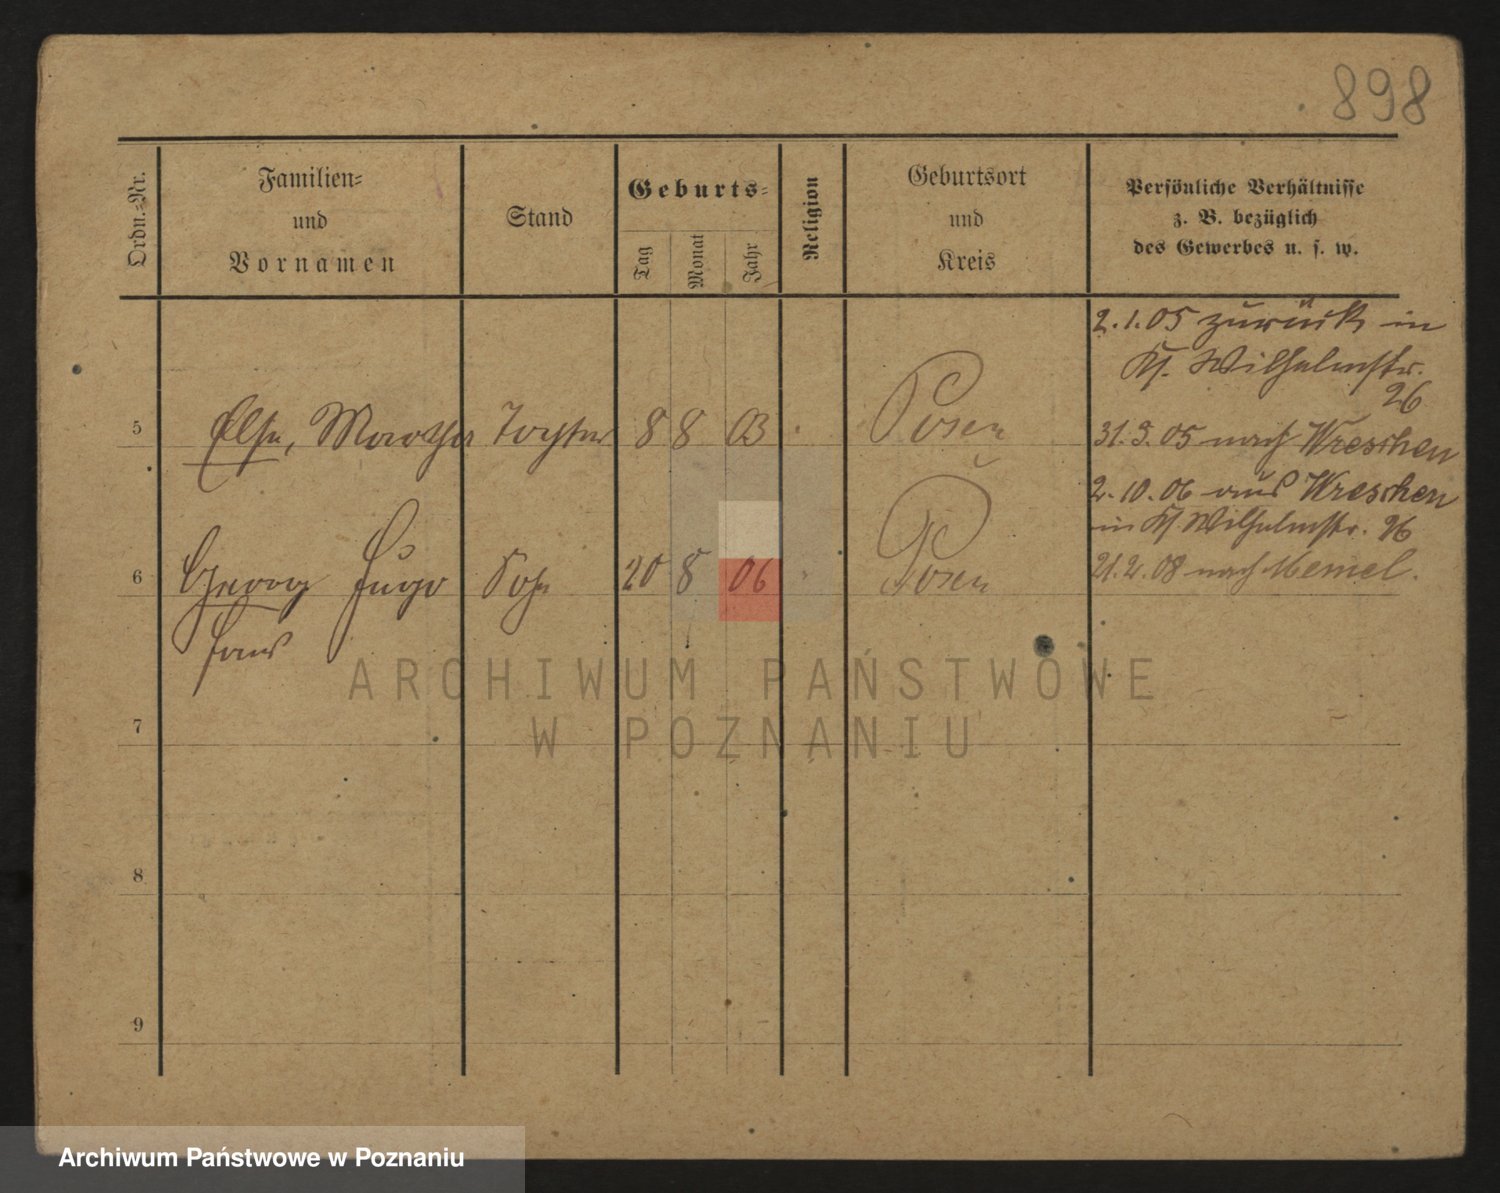 898
Ordn.-Nr.
Familien-
und
Vornamen
Stand
Geburts-
Tag
Monat
Jahr
Religion
Geburtsort
und
Kreis
Persönliche Verhältnisse
z. B. bezüglich
des Gewerbes u. s. w.
2.1.05 zurück in
Kl. Wilhelmstr.
26
5 Else, Martha Tochter 8 8 03 Posen
31.3.05 nach Wreschen
2.10.06 aus Wreschen
in Kl. Wilhelmstr. 26
6 Georg Hugo Sohn 20 8 06 Posen
21.2.08 nach Memel.
Hans
ARCHIWUM PAŃSTWOWE
W POZNANIU
7
8
9
Archiwum Państwowe w Poznaniu